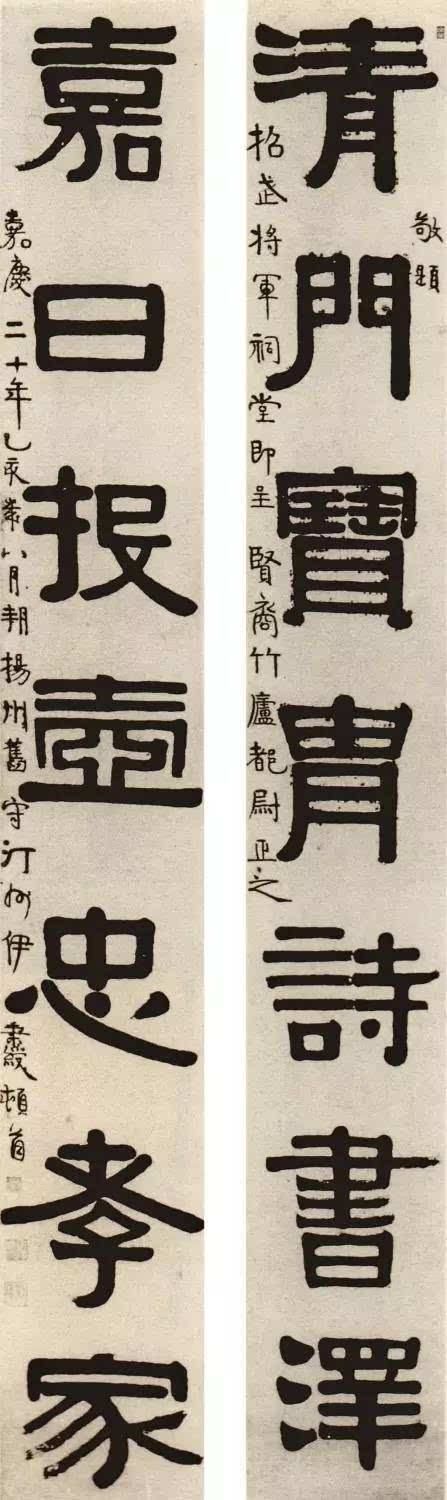 敬題
清門寶胄詩書澤
招武將軍祠堂即呈 賢裔竹廬都尉正之
嘉日投壺忠孝家
嘉慶二十年乙亥歲八月朔揚州舊守汀州伊秉綬頓首